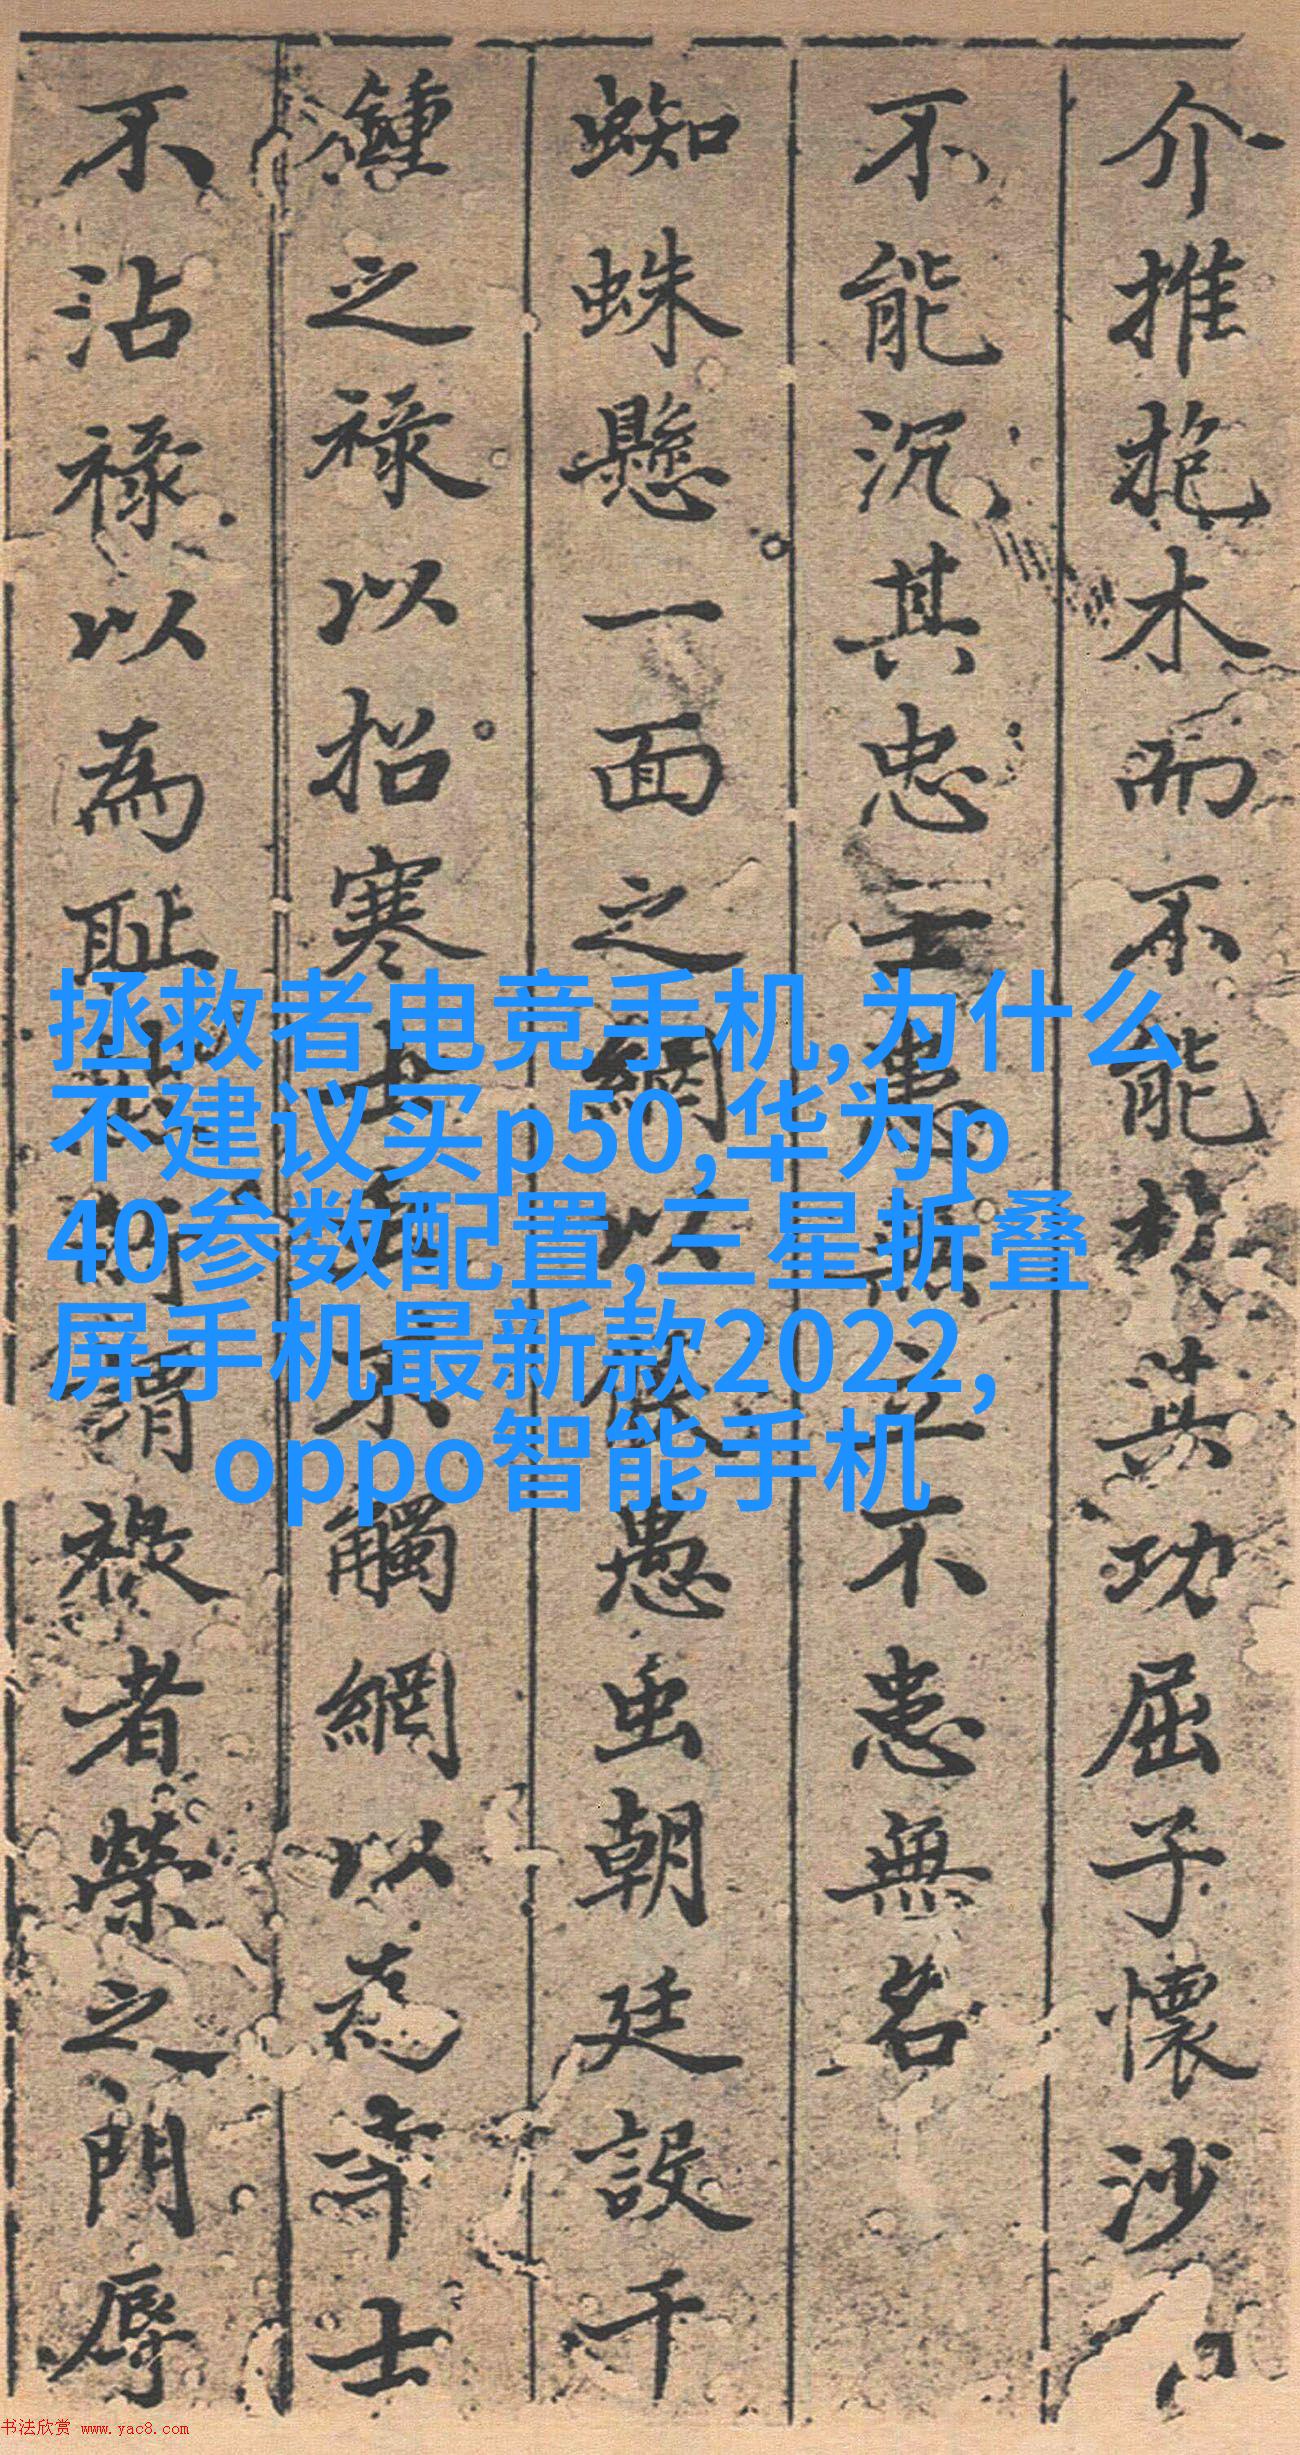 介推抱木而不能朽其功屈子懷沙
不能沉其忠士患無立不患無名
蜘蛛懸一面之網以愚虫朝廷設千
鍾之祿以招寒士不觸網以為寧士
不沾祿以為耻謂祿者榮之門辱
拯救者电竞手机,为什么
不建议买p50,华为p
40参数配置,三星折叠
屏手机最新款2022,
oppo智能手机
书法欣赏 www.yac8.com